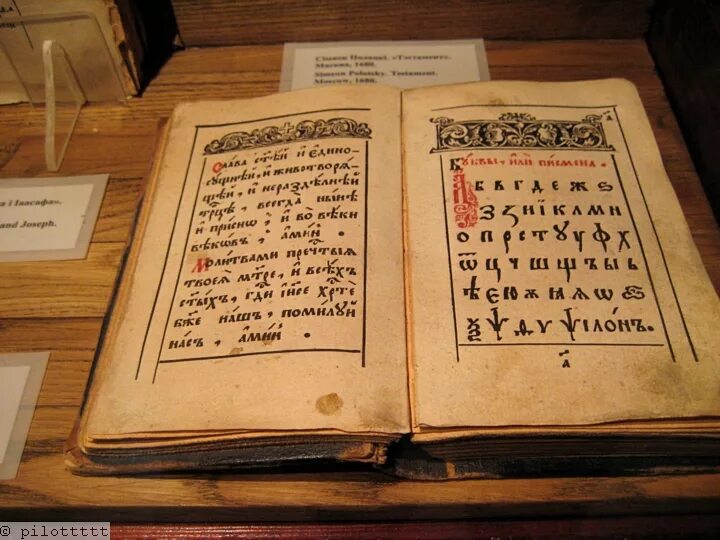 Сімяон Полацкі. «Тэстамент».
Масква, 1680.
Simeon Polotsky. Testament.
Moscow, 1680.
а і Іаасафа».
and Joseph.
Слава ст҃ѣй и едино-
сꙋщнѣй, и животворѧ-
щей, и нераздѣлнѣй
трⷪ҇цѣ, всегда нн҃ѣ
и присно, и во вѣки
вѣкѡвъ, аминь.
Молитвами пречⷭ҇тыѧ
твоеѧ мт҃ре, и всѣхъ
ст҃ыхъ, гдⷭ҇и іи҃се хрⷭ҇те
бж҃е нашъ, помилꙋй
насъ, аминь.
Бꙋквы, или писмена.
А Б В Г Д Е Ж Ѕ
З Ꙁ И Ї К Л М Н
О П Р С Т У Ꙋ Ф Х
Ѿ Ц Ч Ш Щ Ъ Ы Ь
Ѣ Є Ю
Ѯ Ѱ ѰІЛОНЪ.
а҃
© pilottttt